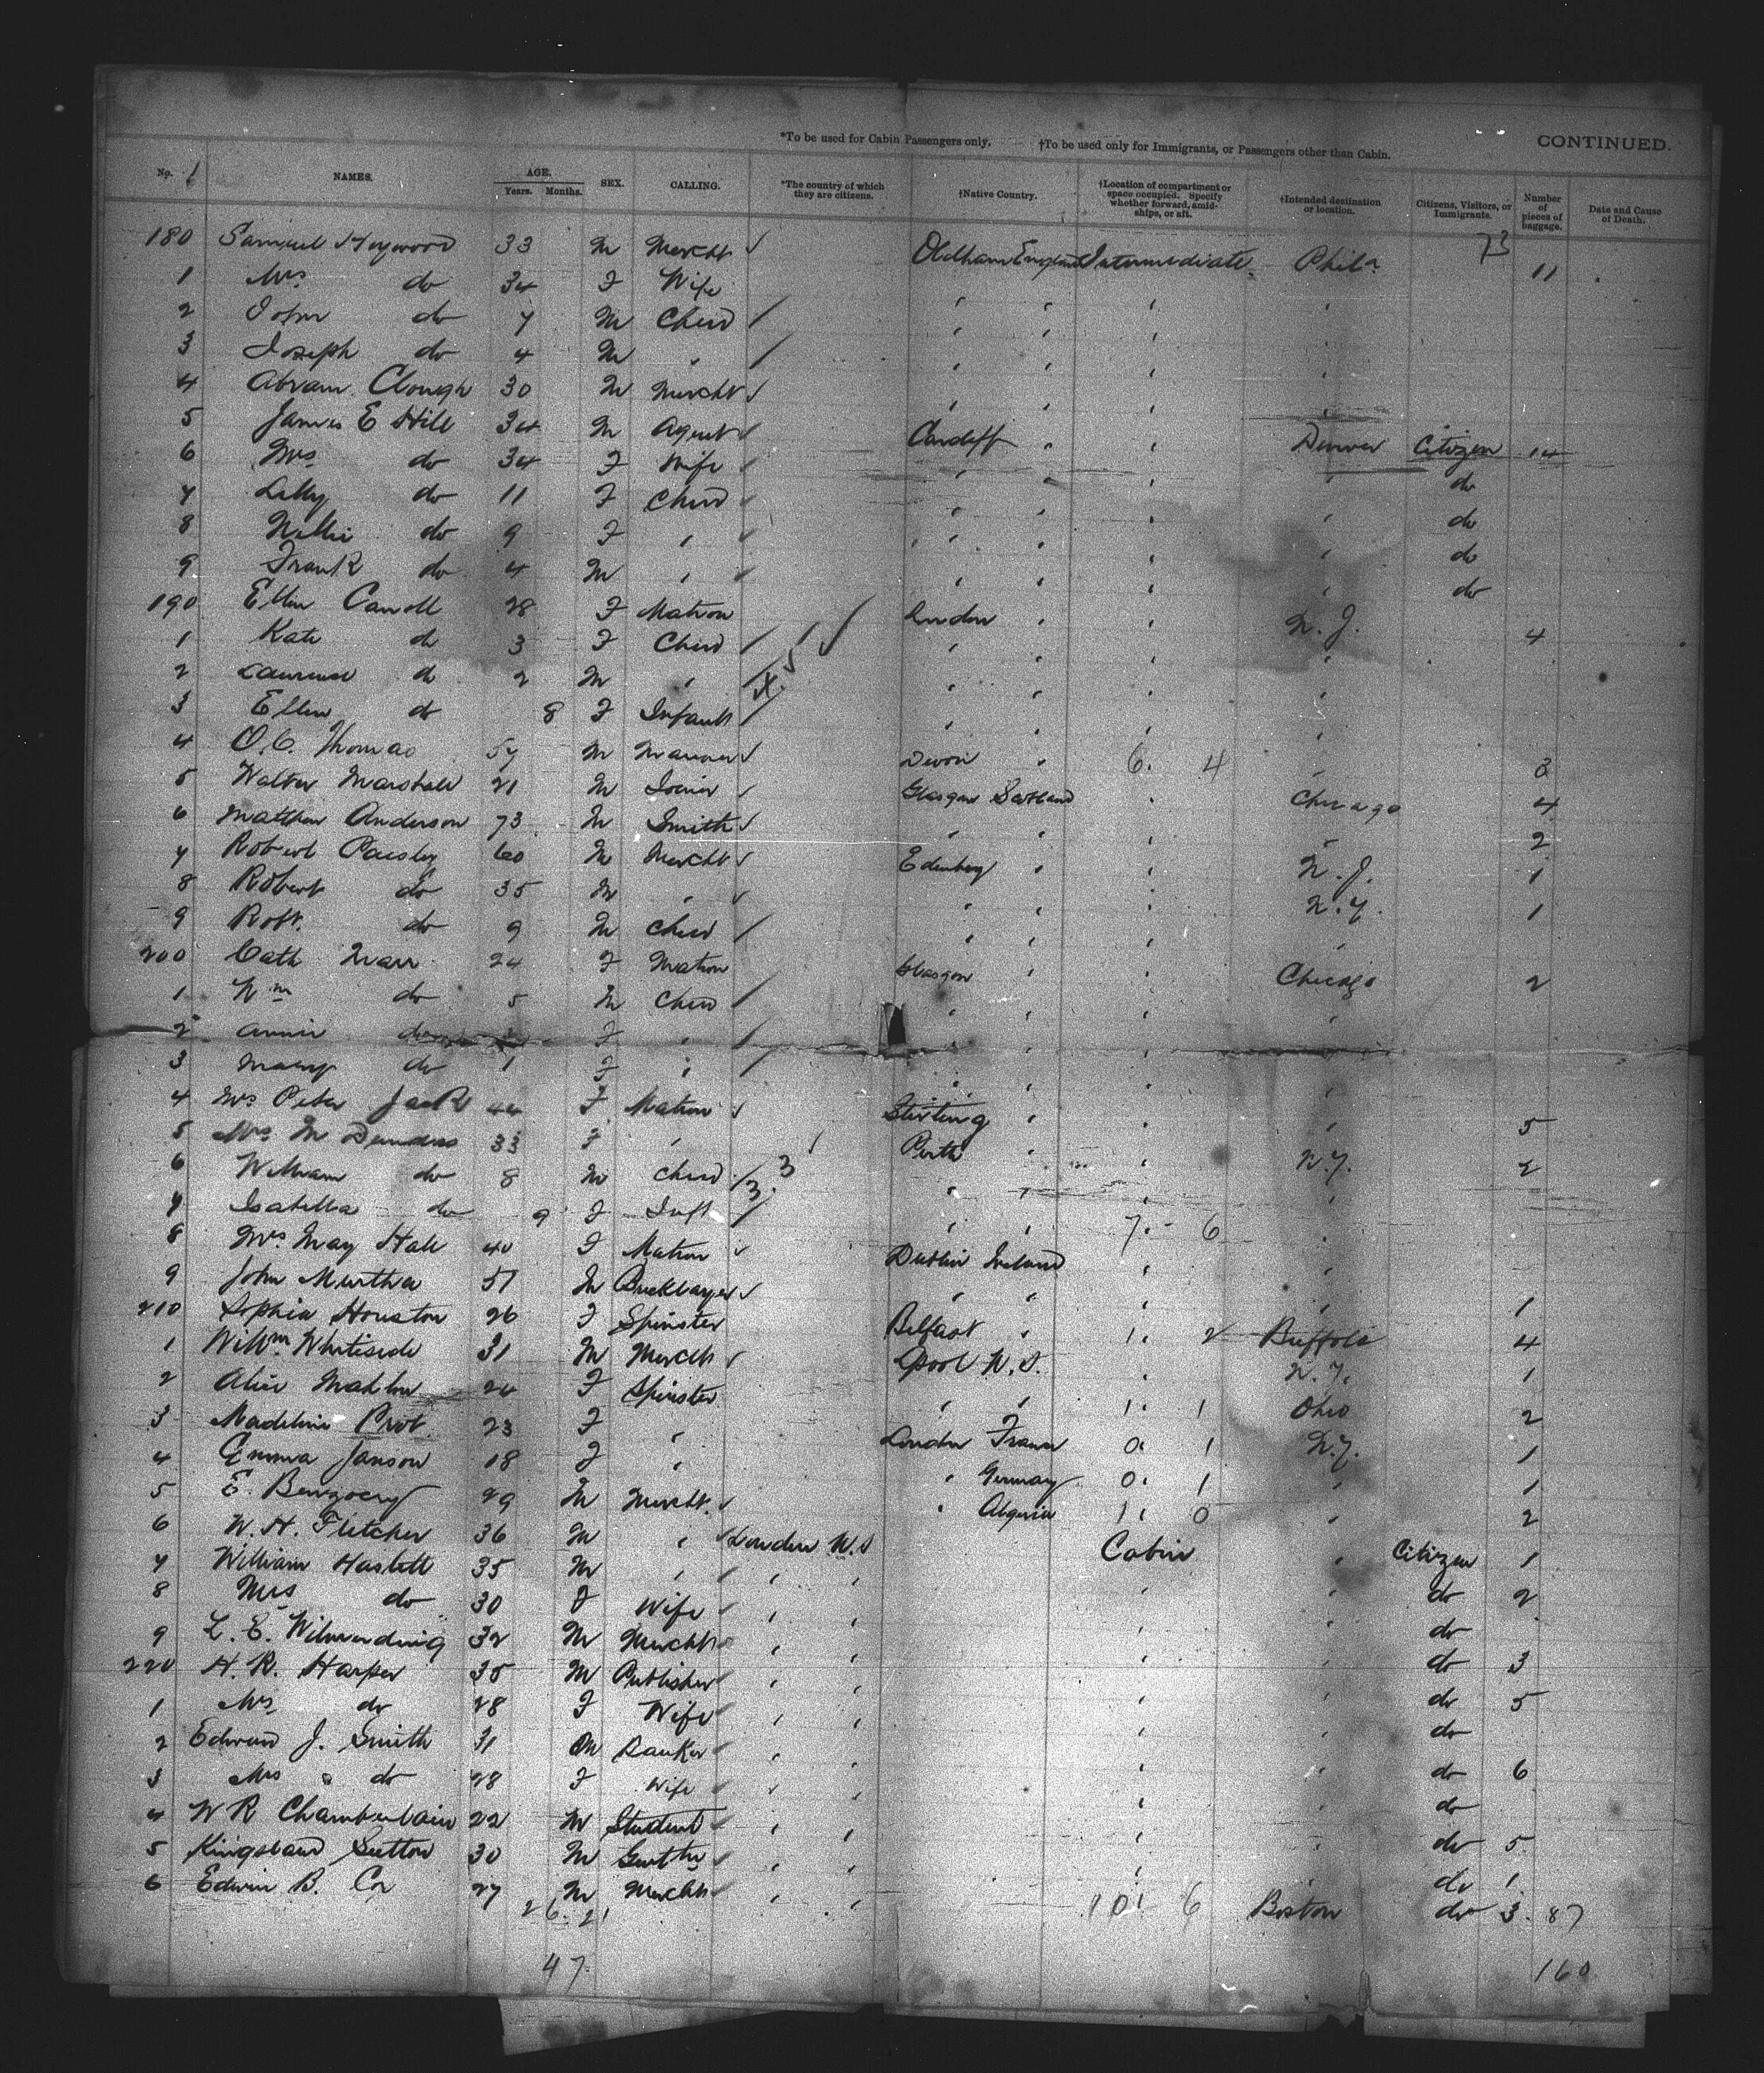 *To be used for Cabin Passengers only. †To be used only for Immigrants, or Passengers other than Cabin. CONTINUED.
No. NAMES. AGE. Years. Months. SEX. CALLING. *The country of which they are citizens. †Native Country. †Location of compartment or space occupied. Specify whether forward, amidships, or aft. †Intended destination or location. Citizens, Visitors, or Immigrants. Number of pieces of baggage. Date and Cause of Death.
73
180 Samuel Heywood 33 M Mercht Oldham England Intermediate Phila 11
1 Mrs do 34 F Wife
2 John do 7 M Child
3 Joseph do 4 M "
4 Abram Clough 30 M Mercht
5 James E Hill 34 M Agent Cardiff " " Denver Citizen 14
6 Mrs do 34 F Wife " " " do
7 Lilly do 11 F Child " " " do
8 Nellie do 9 F " " " " do
9 Frank do 4 M " " " " do
190 Ellen Carroll 28 F Matron London " " N.J. 4
1 Kate do 3 F Child
2 Laurence do 2 M "
3 Ellen do 8 F Infant
4 O.C. Thomas 57 M Mariner Devon " 6. 4 " 3
5 Walter Marshall 21 M Joiner Glasgow Scotland " Chicago 4
6 Matthew Anderson 73 M Smith " " " " 2
7 Robert Paisley 60 M Mercht Edenburg " " N.J. 1
8 Robert do 35 M " " " " N.Y. 1
9 Robt. do 9 M Child " " " "
200 Cath Marr 24 F Matron Glasgow " " Chicago 2
1 Wm do 5 M Child
2 Annie do F "
3 Mary do 1 F "
4 Mrs Peter Jack 44 F Matron Stirling " " " 5
5 Mrs M Dundas 33 F " Perth " " N.Y. 2
6 William do 8 M Child 3 3
7 Isabella do 9 F Inft " " 7. 6
8 Mrs May Hall 40 F Matron Dublin Ireland " "
9 John Murtha 51 M Bricklayer " " " " 1
210 Sophia Houston 26 F Spinster Belfast " 1. 2 Buffalo 4
1 Willm Whiteside 31 M Mercht Lpool N.S. " N.Y. 1
2 Alice 24 F Spinster " " 1. 1 Ohio 2
3 Madeline Prot. 23 F " London France 0. 1 N.Y. 1
4 Emma Janson 18 F " " Germany 0. 1 " 1
5 E. 29 M Mercht. " Algeria 1. 0 " 2
6 W.H. Fletcher 36 M " London N.S Cabin " Citizen 1
7 William Haslett 35 M " " " " " do 2
8 Mrs do 30 F Wife " " " " do
9 L.E. Wilmerding 32 M Mercht " " " " do 3
220 H.R. Harper 35 M Publisher " " " " do 5
1 Mrs do 28 F Wife " " " " do
2 Edward J. Smith 31 M Banker " " " " do 6
3 Mrs do 28 F Wife " " " " do
4 W R Chamberlain 22 M Student " " " " do 5
5 Kingsland Sutton 30 M " " " " do 1
6 Edwin B. Cox 27 M Mercht " " Boston do 3. 87
26 21 10. 6
47 160